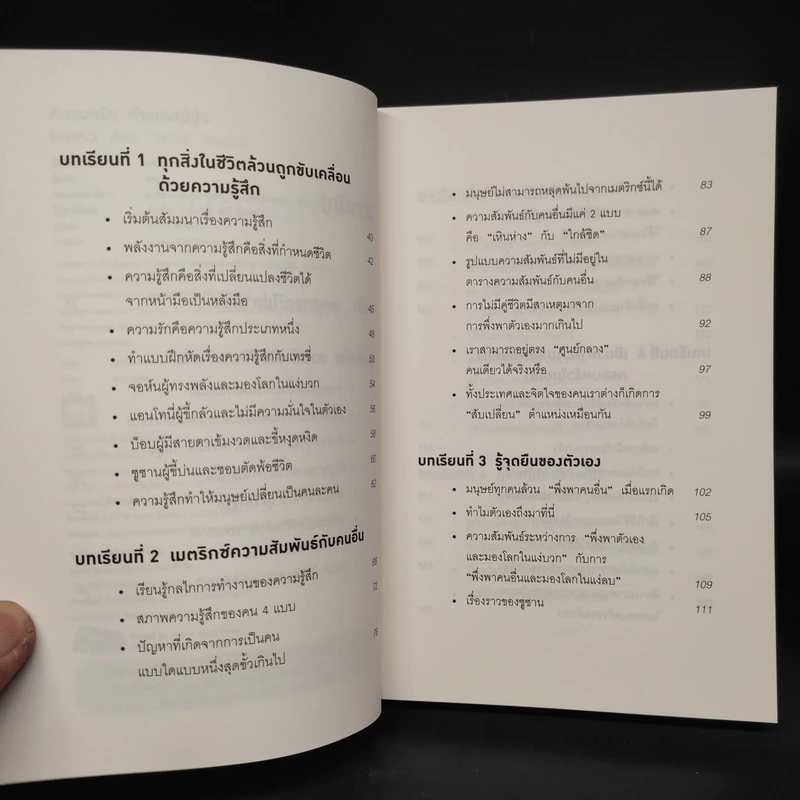 บทเรียนที่ 1 ทุกสิ่งในชีวิตล้วนถูกขับเคลื่อน
ด้วยความรู้สึก
• เริ่มต้นสัมมนาเรื่องความรู้สึก 40
• พลังงานจากความรู้สึกคือสิ่งที่กำหนดชีวิต 42
• ความรู้สึกคือสิ่งที่เปลี่ยนแปลงชีวิตได้
จากหน้ามือเป็นหลังมือ 45
• ความรักคือความรู้สึกประเภทหนึ่ง 48
• ทำแบบฝึกหัดเรื่องความรู้สึกกับเทรซี่ 50
• จอห์นผู้ทรงพลังและมองโลกในแง่บวก 54
• แอนโทนี่ผู้ขี้กลัวและไม่มีความมั่นใจในตัวเอง 56
• บ็อบผู้มีสายตาเข้มงวดและขี้หงุดหงิด 58
• ซูซานผู้ขี้บ่นและชอบตัดพ้อชีวิต 60
• ความรู้สึกทำให้มนุษย์เปลี่ยนเป็นคนละคน 63
บทเรียนที่ 2 เมตริกซ์ความสัมพันธ์กับคนอื่น
• เรียนรู้กลไกการทำงานของความรู้สึก
• สภาพความรู้สึกของคน 4 แบบ 72
• ปัญหาที่เกิดจากการเป็นคน
แบบใดแบบหนึ่งสุดขั้วเกินไป
• มนุษย์ไม่สามารถหลุดพ้นไปจากเมตริกซ์นี้ได้ 83
• ความสัมพันธ์กับคนอื่นมีแค่ 2 แบบ
คือ “เหินห่าง” กับ “ใกล้ชิด” 87
• รูปแบบความสัมพันธ์ที่ไม่มีอยู่ใน
ตารางความสัมพันธ์กับคนอื่น 88
• การไม่มีคู่ชีวิตมีสาเหตุมาจาก
การพึ่งพาตัวเองมากเกินไป 92
• เราสามารถอยู่ตรง “ศูนย์กลาง”
คนเดียวได้จริงหรือ 97
• ทั้งประเทศและจิตใจของคนเราต่างก็เกิดการ
“สับเปลี่ยน” ตำแหน่งเหมือนกัน 99
บทเรียนที่ 3 รู้จุดยืนของตัวเอง
• มนุษย์ทุกคนล้วน “พึ่งพาคนอื่น” เมื่อแรกเกิด 102
• ทำไมตัวเองถึงมาที่นี่ 105
• ความสัมพันธ์ระหว่างการ “พึ่งพาตัวเอง
และมองโลกในแง่บวก” กับการ
“พึ่งพาคนอื่นและมองโลกในแง่ลบ” 109
• เรื่องราวของซูซาน 111